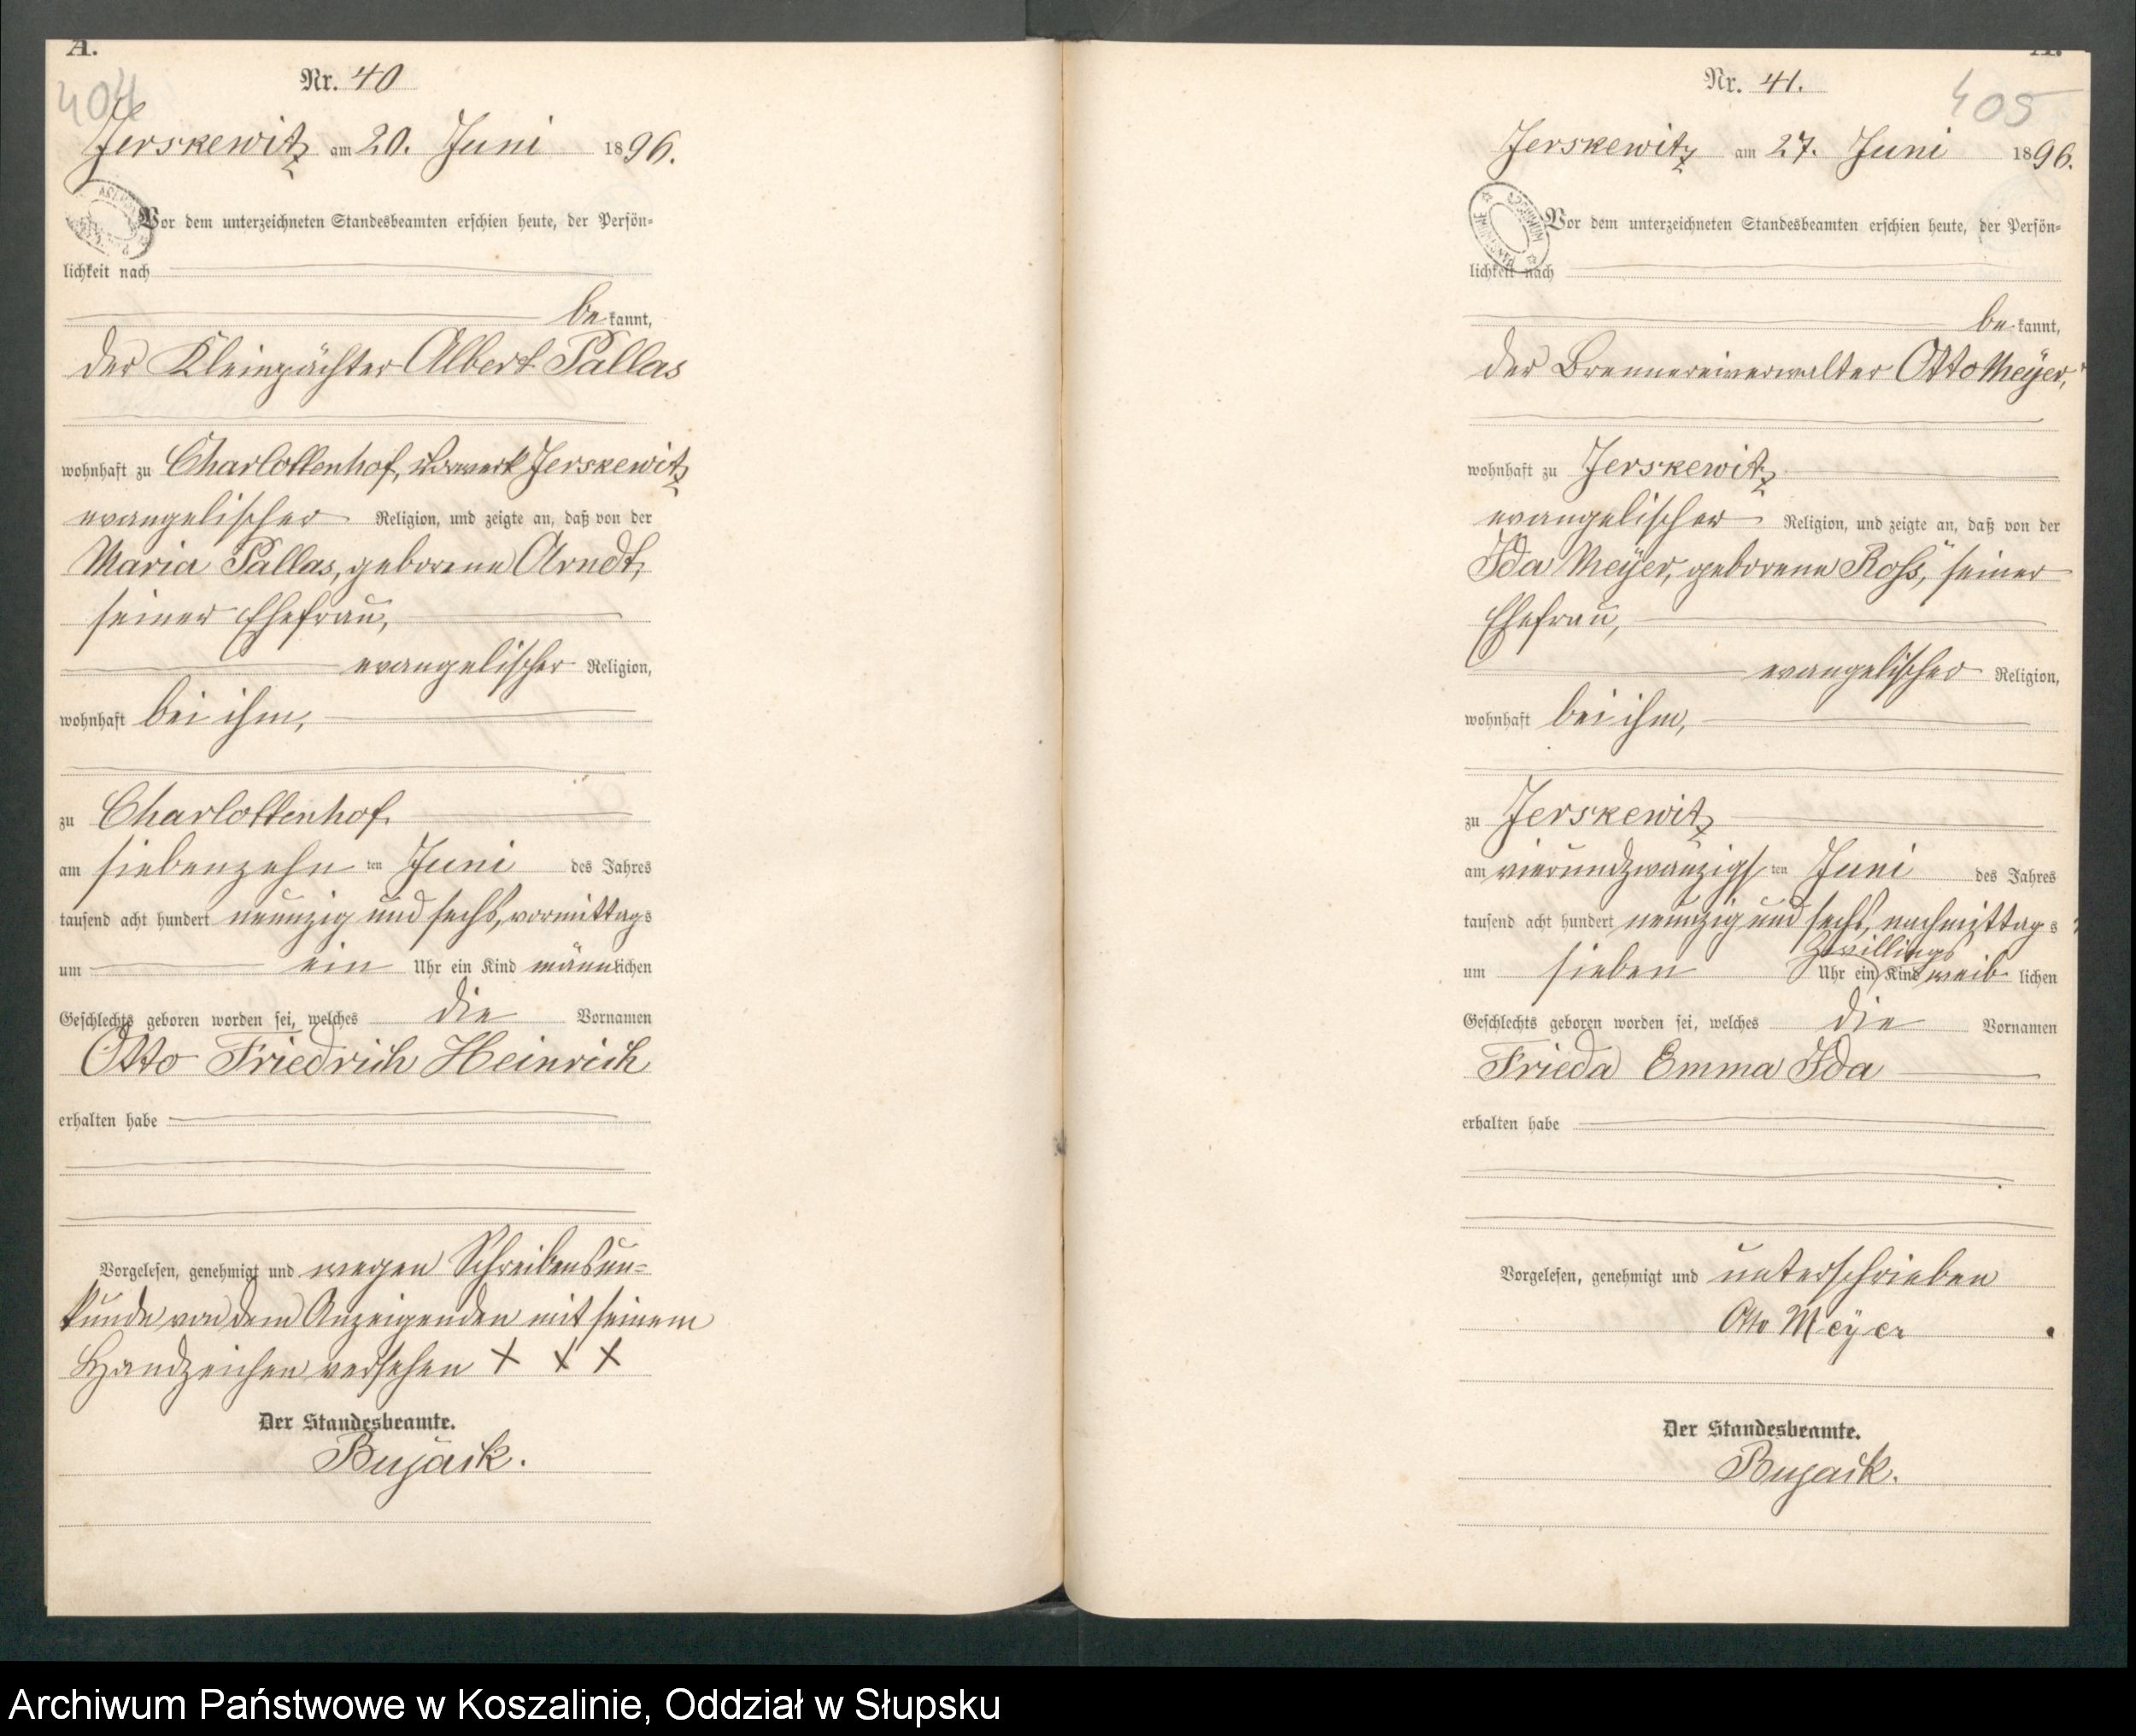 A.
404
Nr. 40
Jerskewitz am 20. Juni 1896.
Vor dem unterzeichneten Standesbeamten erschien heute, der Persön=
lichkeit nach
be kannt,
der Kleinpächter Albert Pallas
wohnhaft zu Charlottenhof, Vorwerk Jerskewitz
evangelischer Religion, und zeigte an, daß von der
Maria Pallas, geborene Arndt,
seiner Ehefrau,
evangelischer Religion,
wohnhaft bei ihm,
zu Charlottenhof
am siebenzehn ten Juni des Jahres
tausend acht hundert neunzig und sechs, vormittags
um ein Uhr ein Kind männlichen
Geschlechts geboren worden sei, welches die Vornamen
Otto Friedrich Heinrich
erhalten habe
Vorgelesen, genehmigt und wegen Schreibensun=
kunde von dem Anzeigenden mit seinem
Handzeichen versehen + + +
Der Standesbeamte.
Bujack.
A.
405
Nr. 41.
Jerskewitz am 27. Juni 1896.
Vor dem unterzeichneten Standesbeamten erschien heute, der Persön=
lichkeit nach
be kannt,
der Brennereiverwalter Otto Meÿer,
wohnhaft zu Jerskewitz
evangelischer Religion, und zeigte an, daß von der
Ida Meÿer, geborene Roß, seiner
Ehefrau,
evangelischer Religion,
wohnhaft bei ihm,
zu Jerskewitz
am vierundzwanzigs ten Juni des Jahres
tausend acht hundert neunzig und sechs, nachmittags
Zwillings
um sieben Uhr ein Kind weib lichen
Geschlechts geboren worden sei, welches die Vornamen
Frieda Emma Ida
erhalten habe
Vorgelesen, genehmigt und unterschrieben
Otto Meÿer
Der Standesbeamte.
Bujack.
Archiwum Państwowe w Koszalinie, Oddział w Słupsku